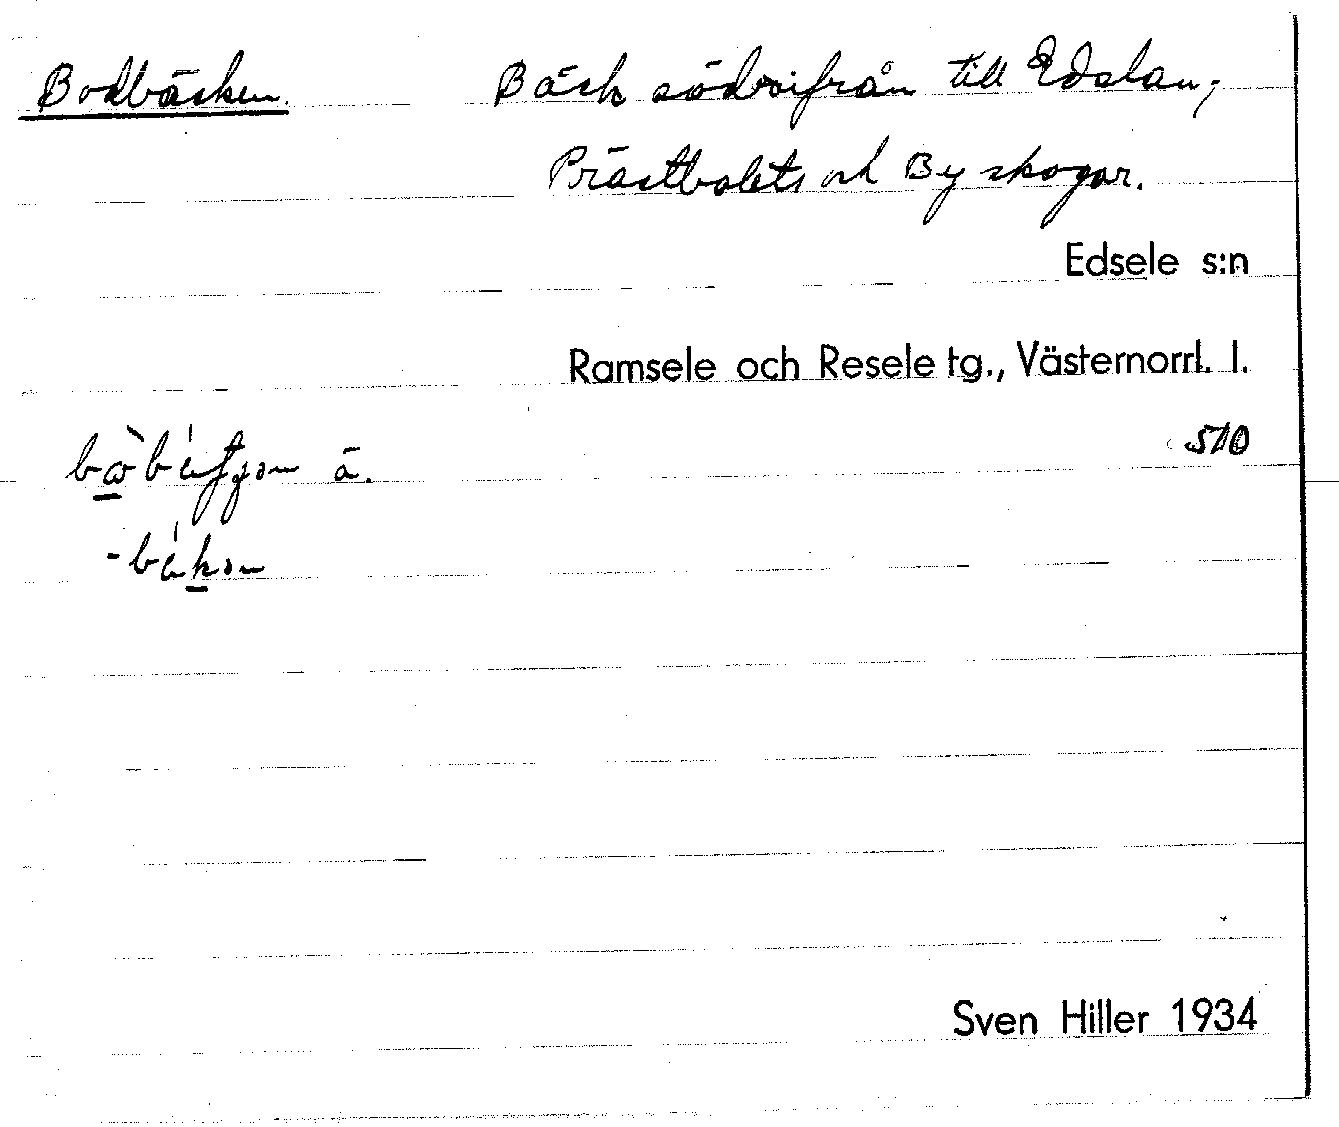 Bodbäcken. Bäck söderifrån till Edslan,
Prästbolets och By skogar.
Edsele s:n
Ramsele och Resele tg., Västernorrl. l.
510
ä.
Sven Hiller 1934